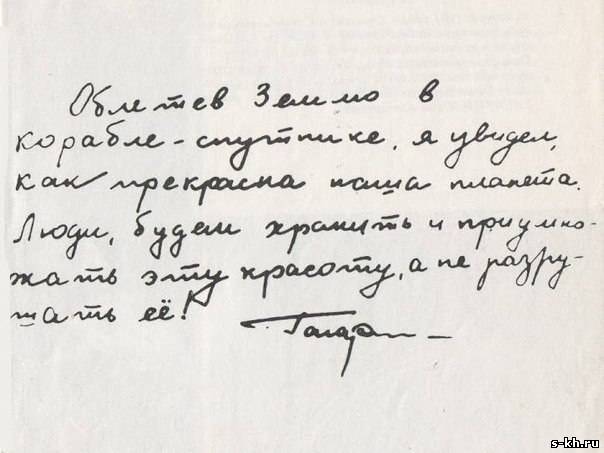 Облетев Землю в
корабле-спутнике, я увидел,
как прекрасна наша планета.
Люди, будем хранить и приумно-
жать эту красоту, а не разру-
шать её!
Гагарин
s-kh.ru